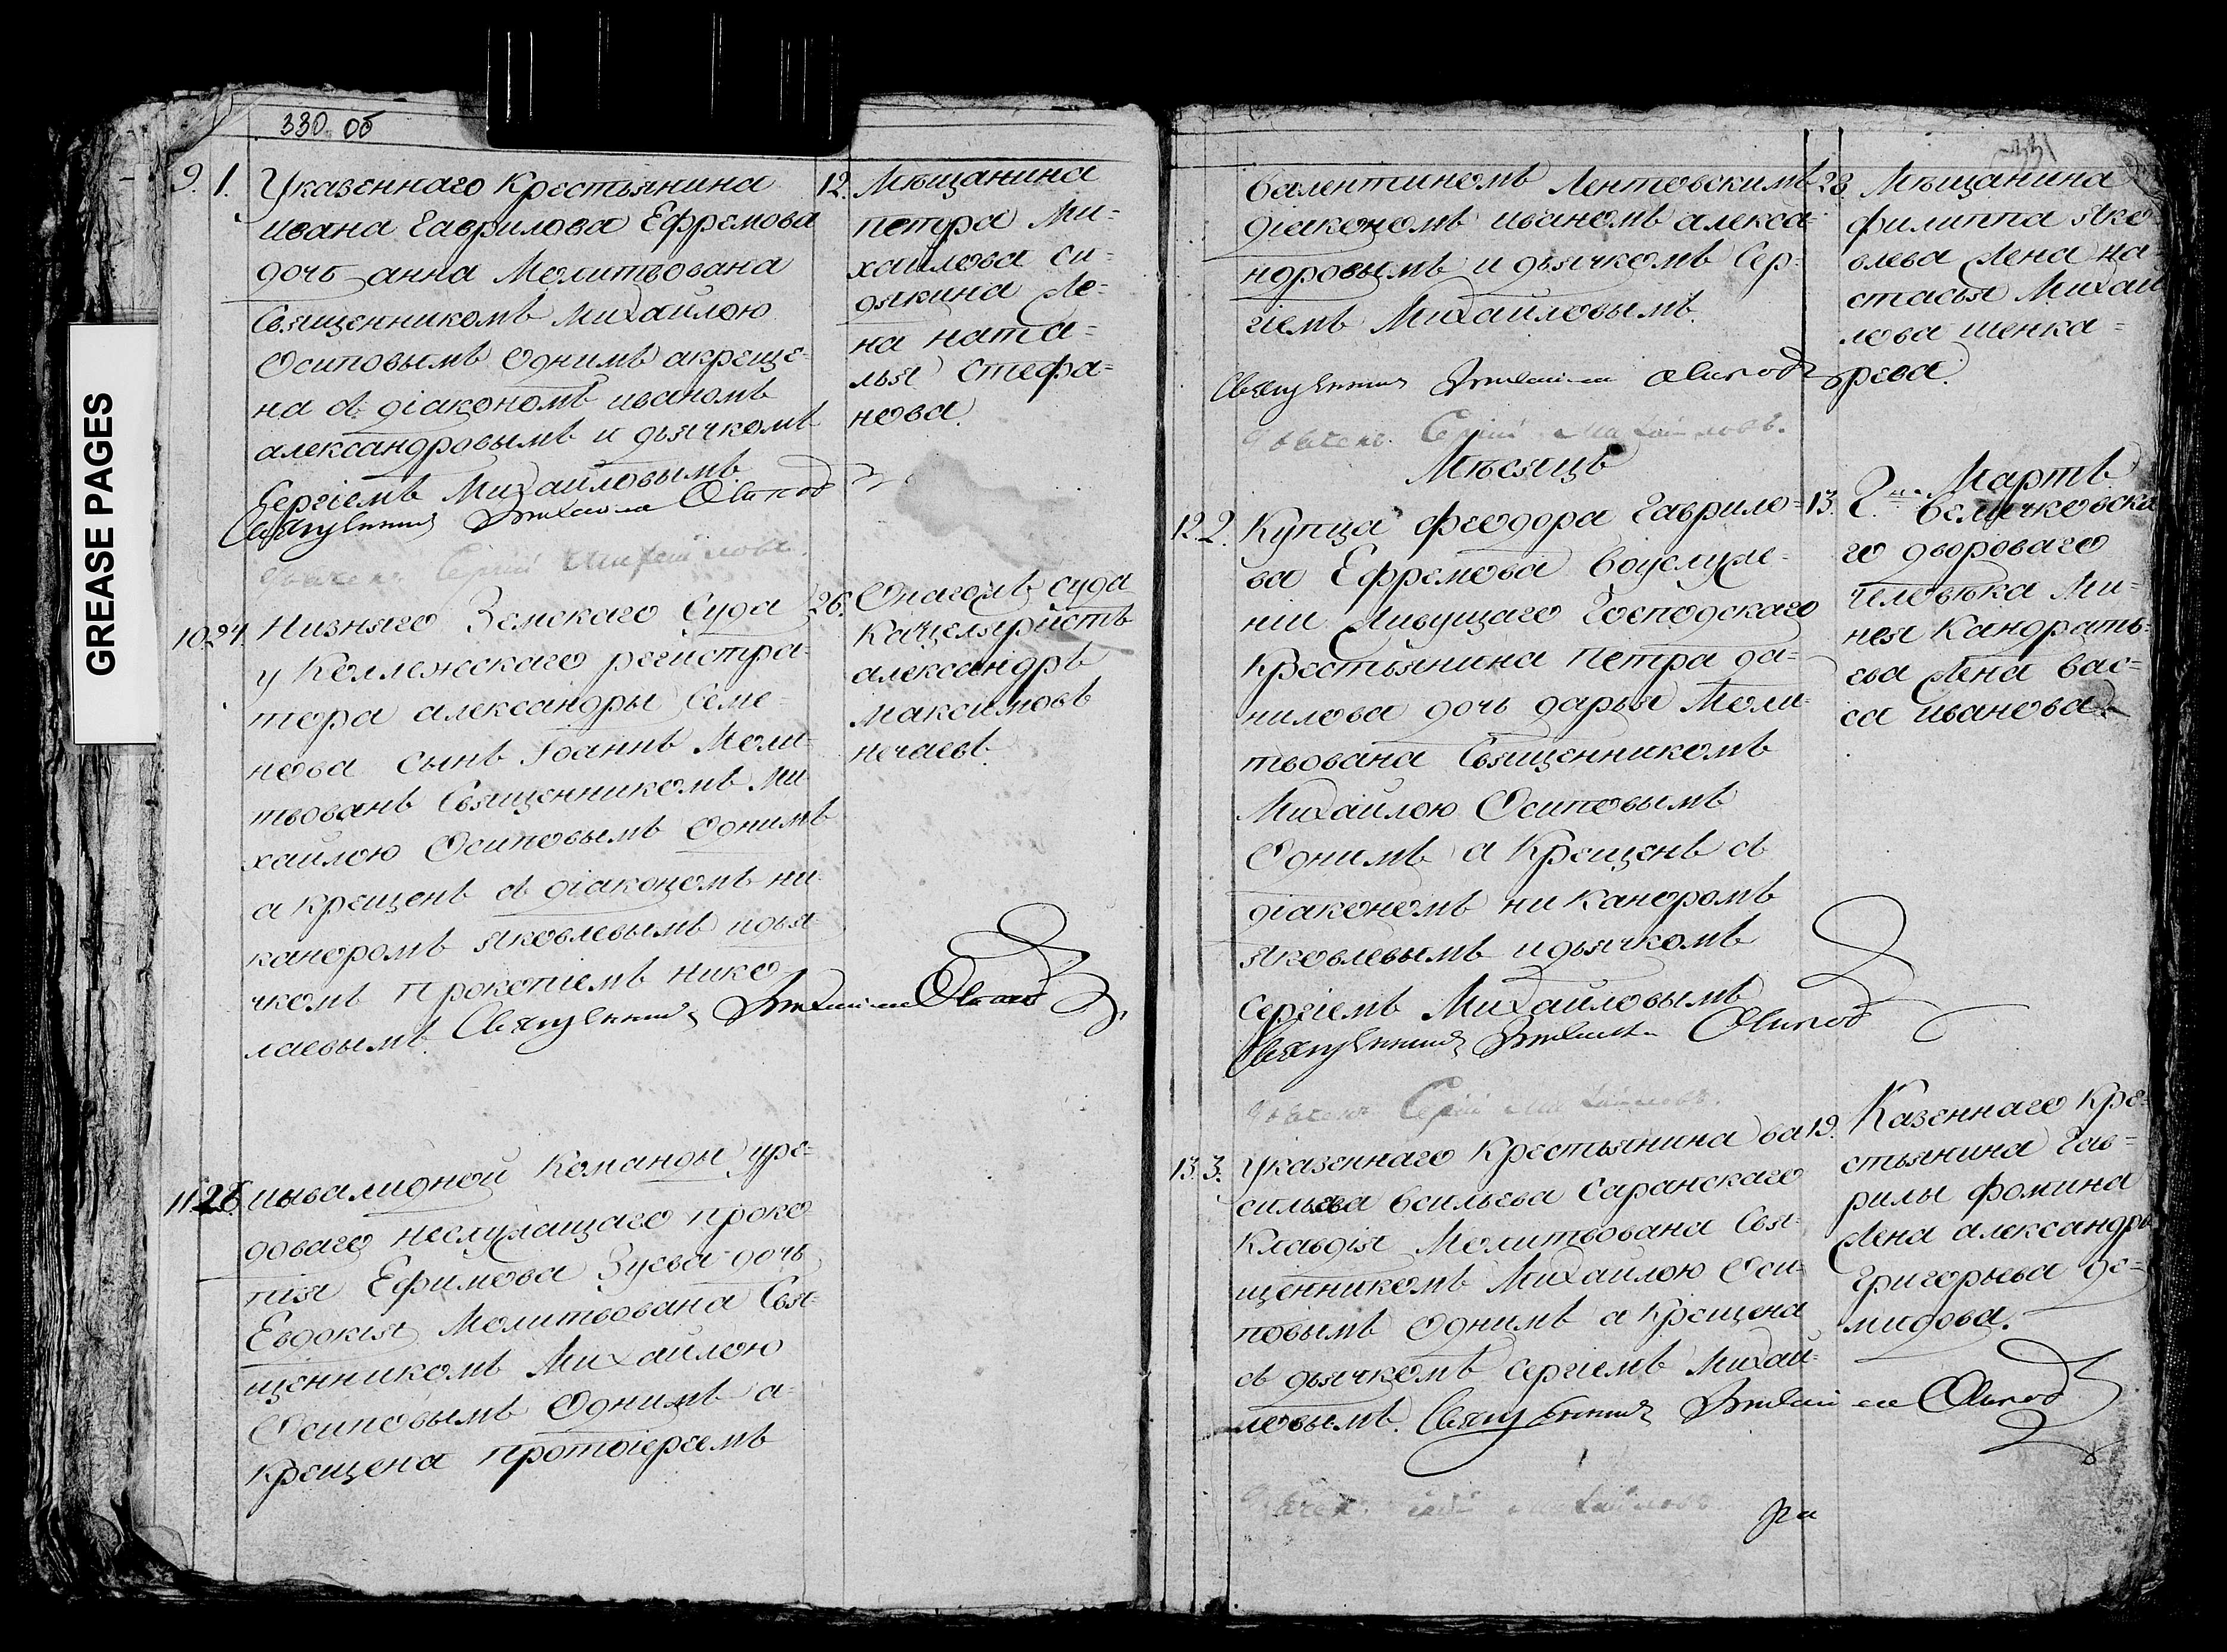 330 об
GREASE PAGES
9. 1. Указеннаго Крестьянина
ивана Гаврилова Ефремова
дочь анна Молитвована
Священникомъ михайлою
Осиповымъ Однимъ акреще-
на съ діакономъ иваномъ
александровымъ и дьячкомъ
Сергіемъ Михайловымъ.
Священникъ Михаила Осиповъ
дьячекъ Сергій Михайловъ.
12. Мѣщанина
петра Ми-
хайлова си-
дякина Же-
на ната-
лья Стефа-
нова.
10. 24. Низняго Земскаго Суда
у Коллежскаго регистра-
тора александры Семе-
нова сынъ Іоаннъ Моли-
твованъ Священникомъ Ми-
хайлою Осиповымъ Однимъ
а крещенъ съ діакономъ ни-
каноромъ яковлевымъ идья-
чкомъ прокопіемъ нико-
лаевымъ. Священникъ Михаила Осиповъ
26. Онагожъ суда
Канцеляристъ
александръ
максимовъ
нечаевъ.
11. 28. инвалидной Команды уре-
доваго неслужащаго проко
пія Ефимова Зуева дочь
Евдокія Молитвована Свя-
щенникомъ Михайлою
Осиповымъ Однимъ а-
крещена протоіереемъ
331
валентиномъ Лентовскимъ
діакономъ иваномъ алекса-
ндровымъ и дьячкомъ Сер-
гіемъ Михайловымъ.
Священникъ Михаила Осиповъ
дьячекъ Сергій Михайловъ.
28. Мѣщанина
филиппа яко
влева Жена на-
стасья Михай
лова шенка-
рева.
Мѣсяцъ Мартъ
12. 2. Купца феодора Гаврило-
ва Ефремова воуслуже-
ніи Живущаго Господскаго
Крестьянина петра да-
нилова дочь дарья Моли-
твована Священникомъ
Михайлою Осиповымъ
Однимъ а Крещенъ съ
діакономъ никаноромъ
яковлевымъ идьячкомъ
Сергіемъ Михайловымъ
Священникъ Михаила Осиповъ
дьячекъ Сергій Михайловъ.
13. Г-на величковска
го двороваго
человѣка Ми-
нея Кандрать-
ева Жена вас-
са иванова
13. 3. Указеннаго Крестьянина ва
сильева всильева Саранскаго
Клавдія Молитвована Свя-
щенникомъ Михайлою Оси-
повымъ Однимъ а Крещена
съ дьячкомъ Сергіемъ Михай-
ловымъ. Священникъ Михаила Осиповъ
дьячекъ Сергій Михайловъ
19. Казеннаго Кре-
стьянина Гав-
рилы фомина
Жена александра
Григорьева де-
мидова.